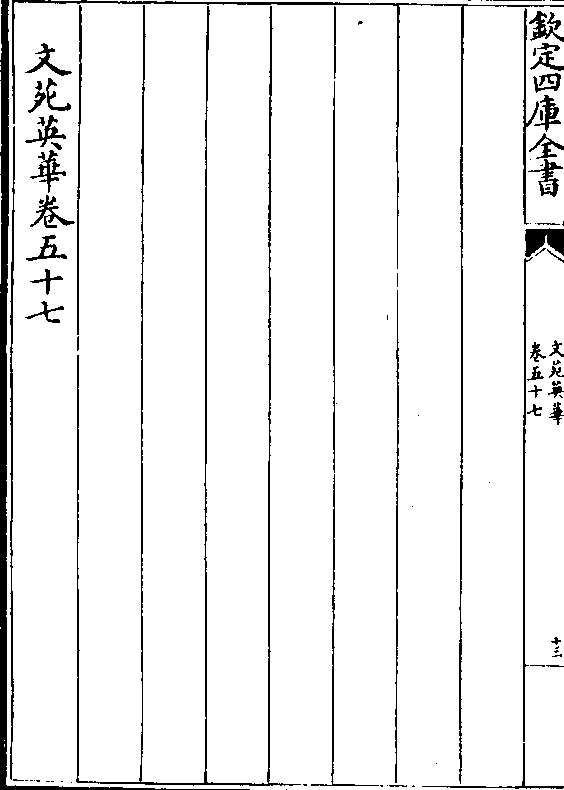 欽定四庫全書
文苑英華
卷五十七
十三
文苑英華卷五十七